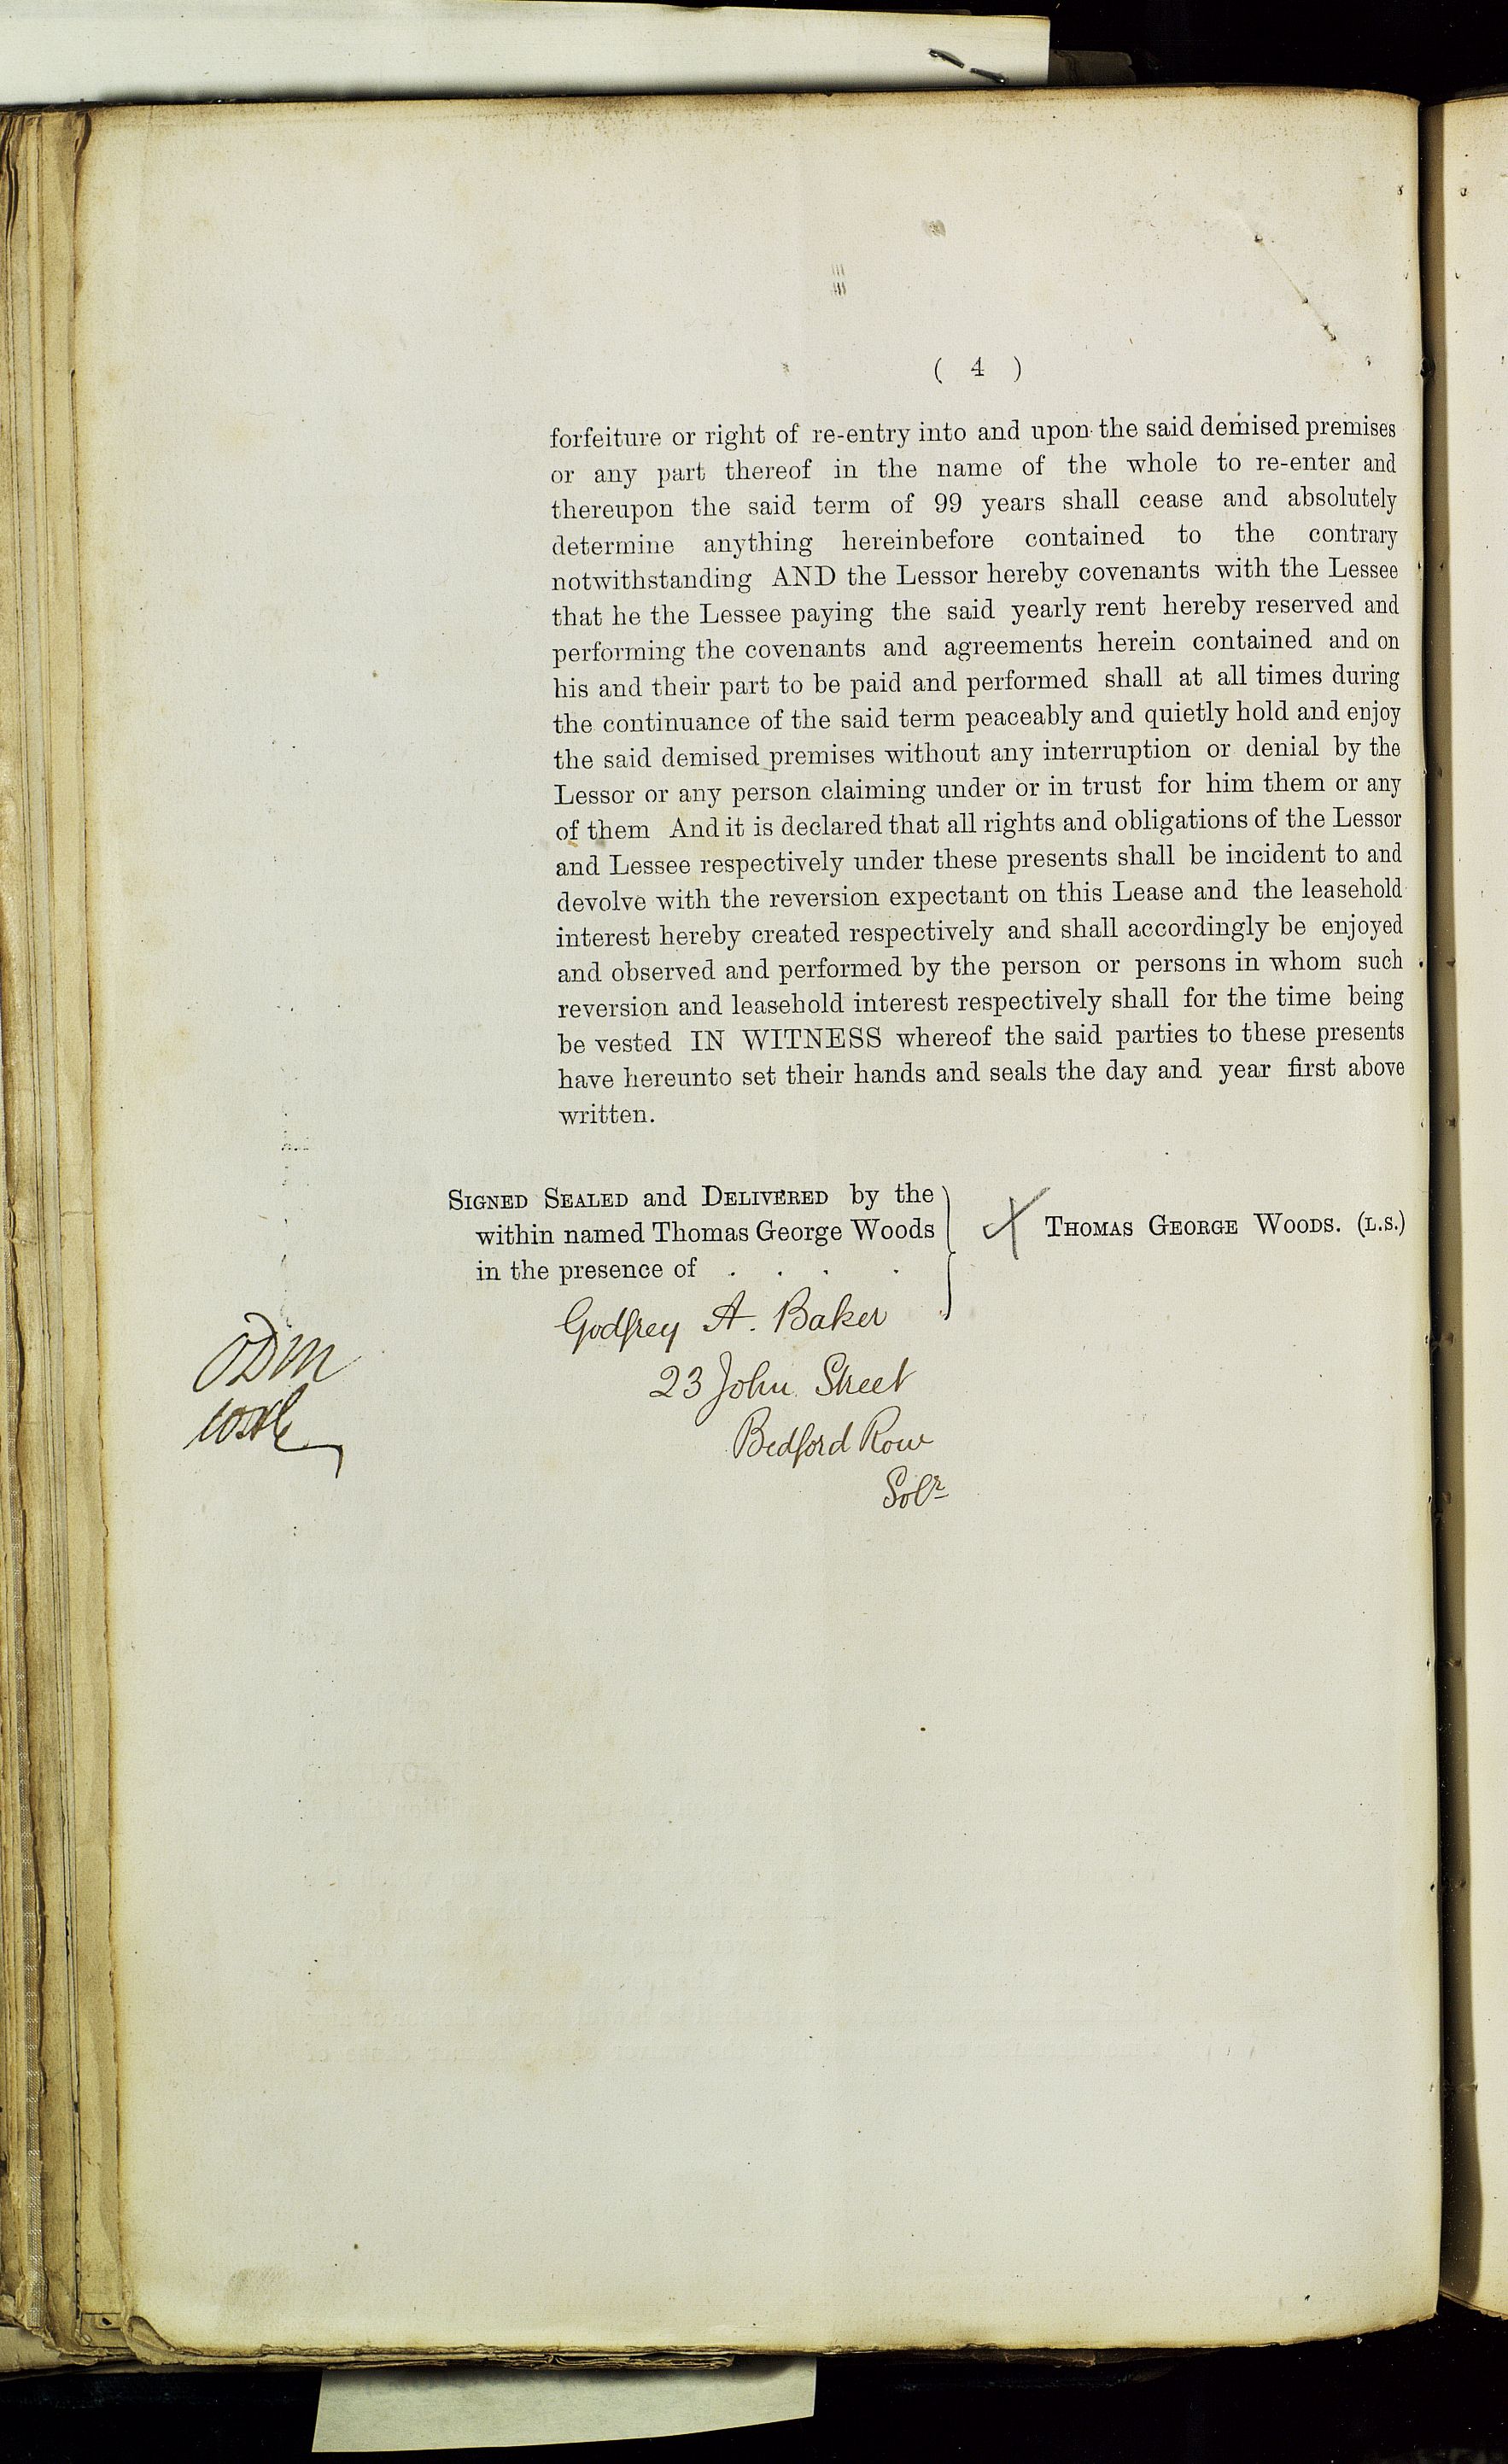 ( 4 )
forfeiture or right of re-entry into and upon the said demised premises
or any part thereof in the name of the whole to re-enter and
thereupon the said term of 99 years shall cease and absolutely
determine anything hereinbefore contained to the contrary
notwithstanding AND the Lessor hereby covenants with the Lessee
that he the Lessee paying the said yearly rent hereby reserved and
performing the covenants and agreements herein contained and on
his and their part to be paid and performed shall at all times during
the continuance of the said term peaceably and quietly hold and enjoy
the said demised premises without any interruption or denial by the
Lessor or any person claiming under or in trust for him them or any
of them And it is declared that all rights and obligations of the Lessor
and Lessee respectively under these presents shall be incident to and
devolve with the reversion expectant on this Lease and the leasehold
interest hereby created respectively and shall accordingly be enjoyed
and observed and performed by the person or persons in whom such
reversion and leasehold interest respectively shall for the time being
be vested IN WITNESS whereof the said parties to these presents
have hereunto set their hands and seals the day and year first above
written.
SIGNED SEALED and DELIVERED by the
within named Thomas George Woods
in the presence of . . . .
THOMAS GEORGE WOODS. (L.S.)
Godfrey A. Baker
23 John Street
Bedford Row
Solr
ODM